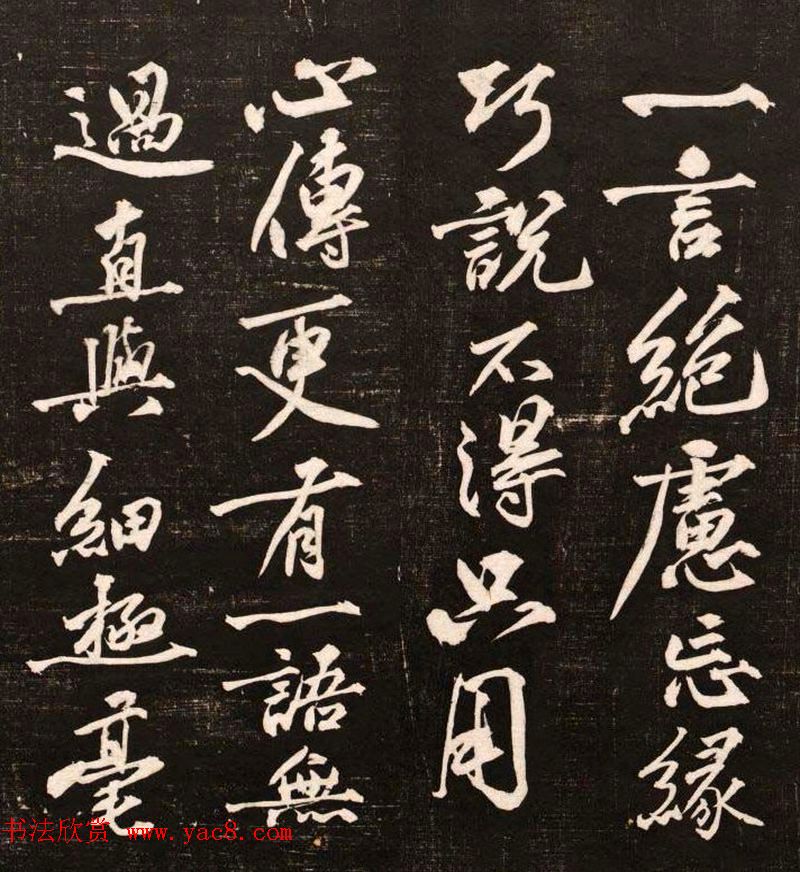 一言絶慮忘緣
巧說不得只用
心傳更有一語無
過直與細極毫
书法欣赏 www.yac8.com